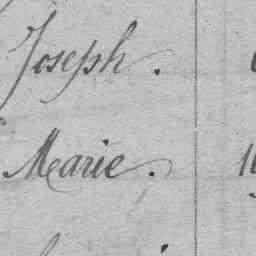 Joseph.
Marie.